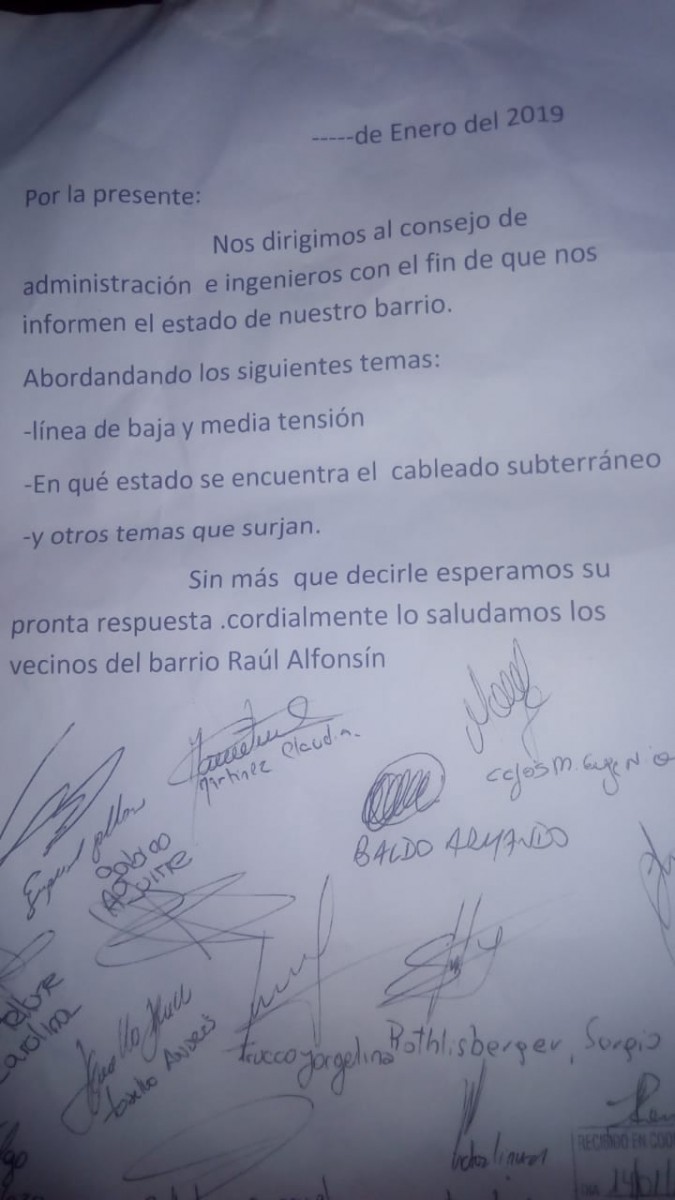 -----de Enero del 2019
Por la presente:
Nos dirigimos al consejo de
administración e ingenieros con el fin de que nos
informen el estado de nuestro barrio.
Abordandando los siguientes temas:
-línea de baja y media tensión
-En qué estado se encuentra el cableado subterráneo
-y otros temas que surjan.
Sin más que decirle esperamos su
pronta respuesta .cordialmente lo saludamos los
vecinos del barrio Raúl Alfonsín
Martinez Claudia.
BALDO ARMANDO
AGUIRRE
Carolina
Andres
Trucco Jorgelina
Rothlisberger, Sergio
RECIBIDO EN